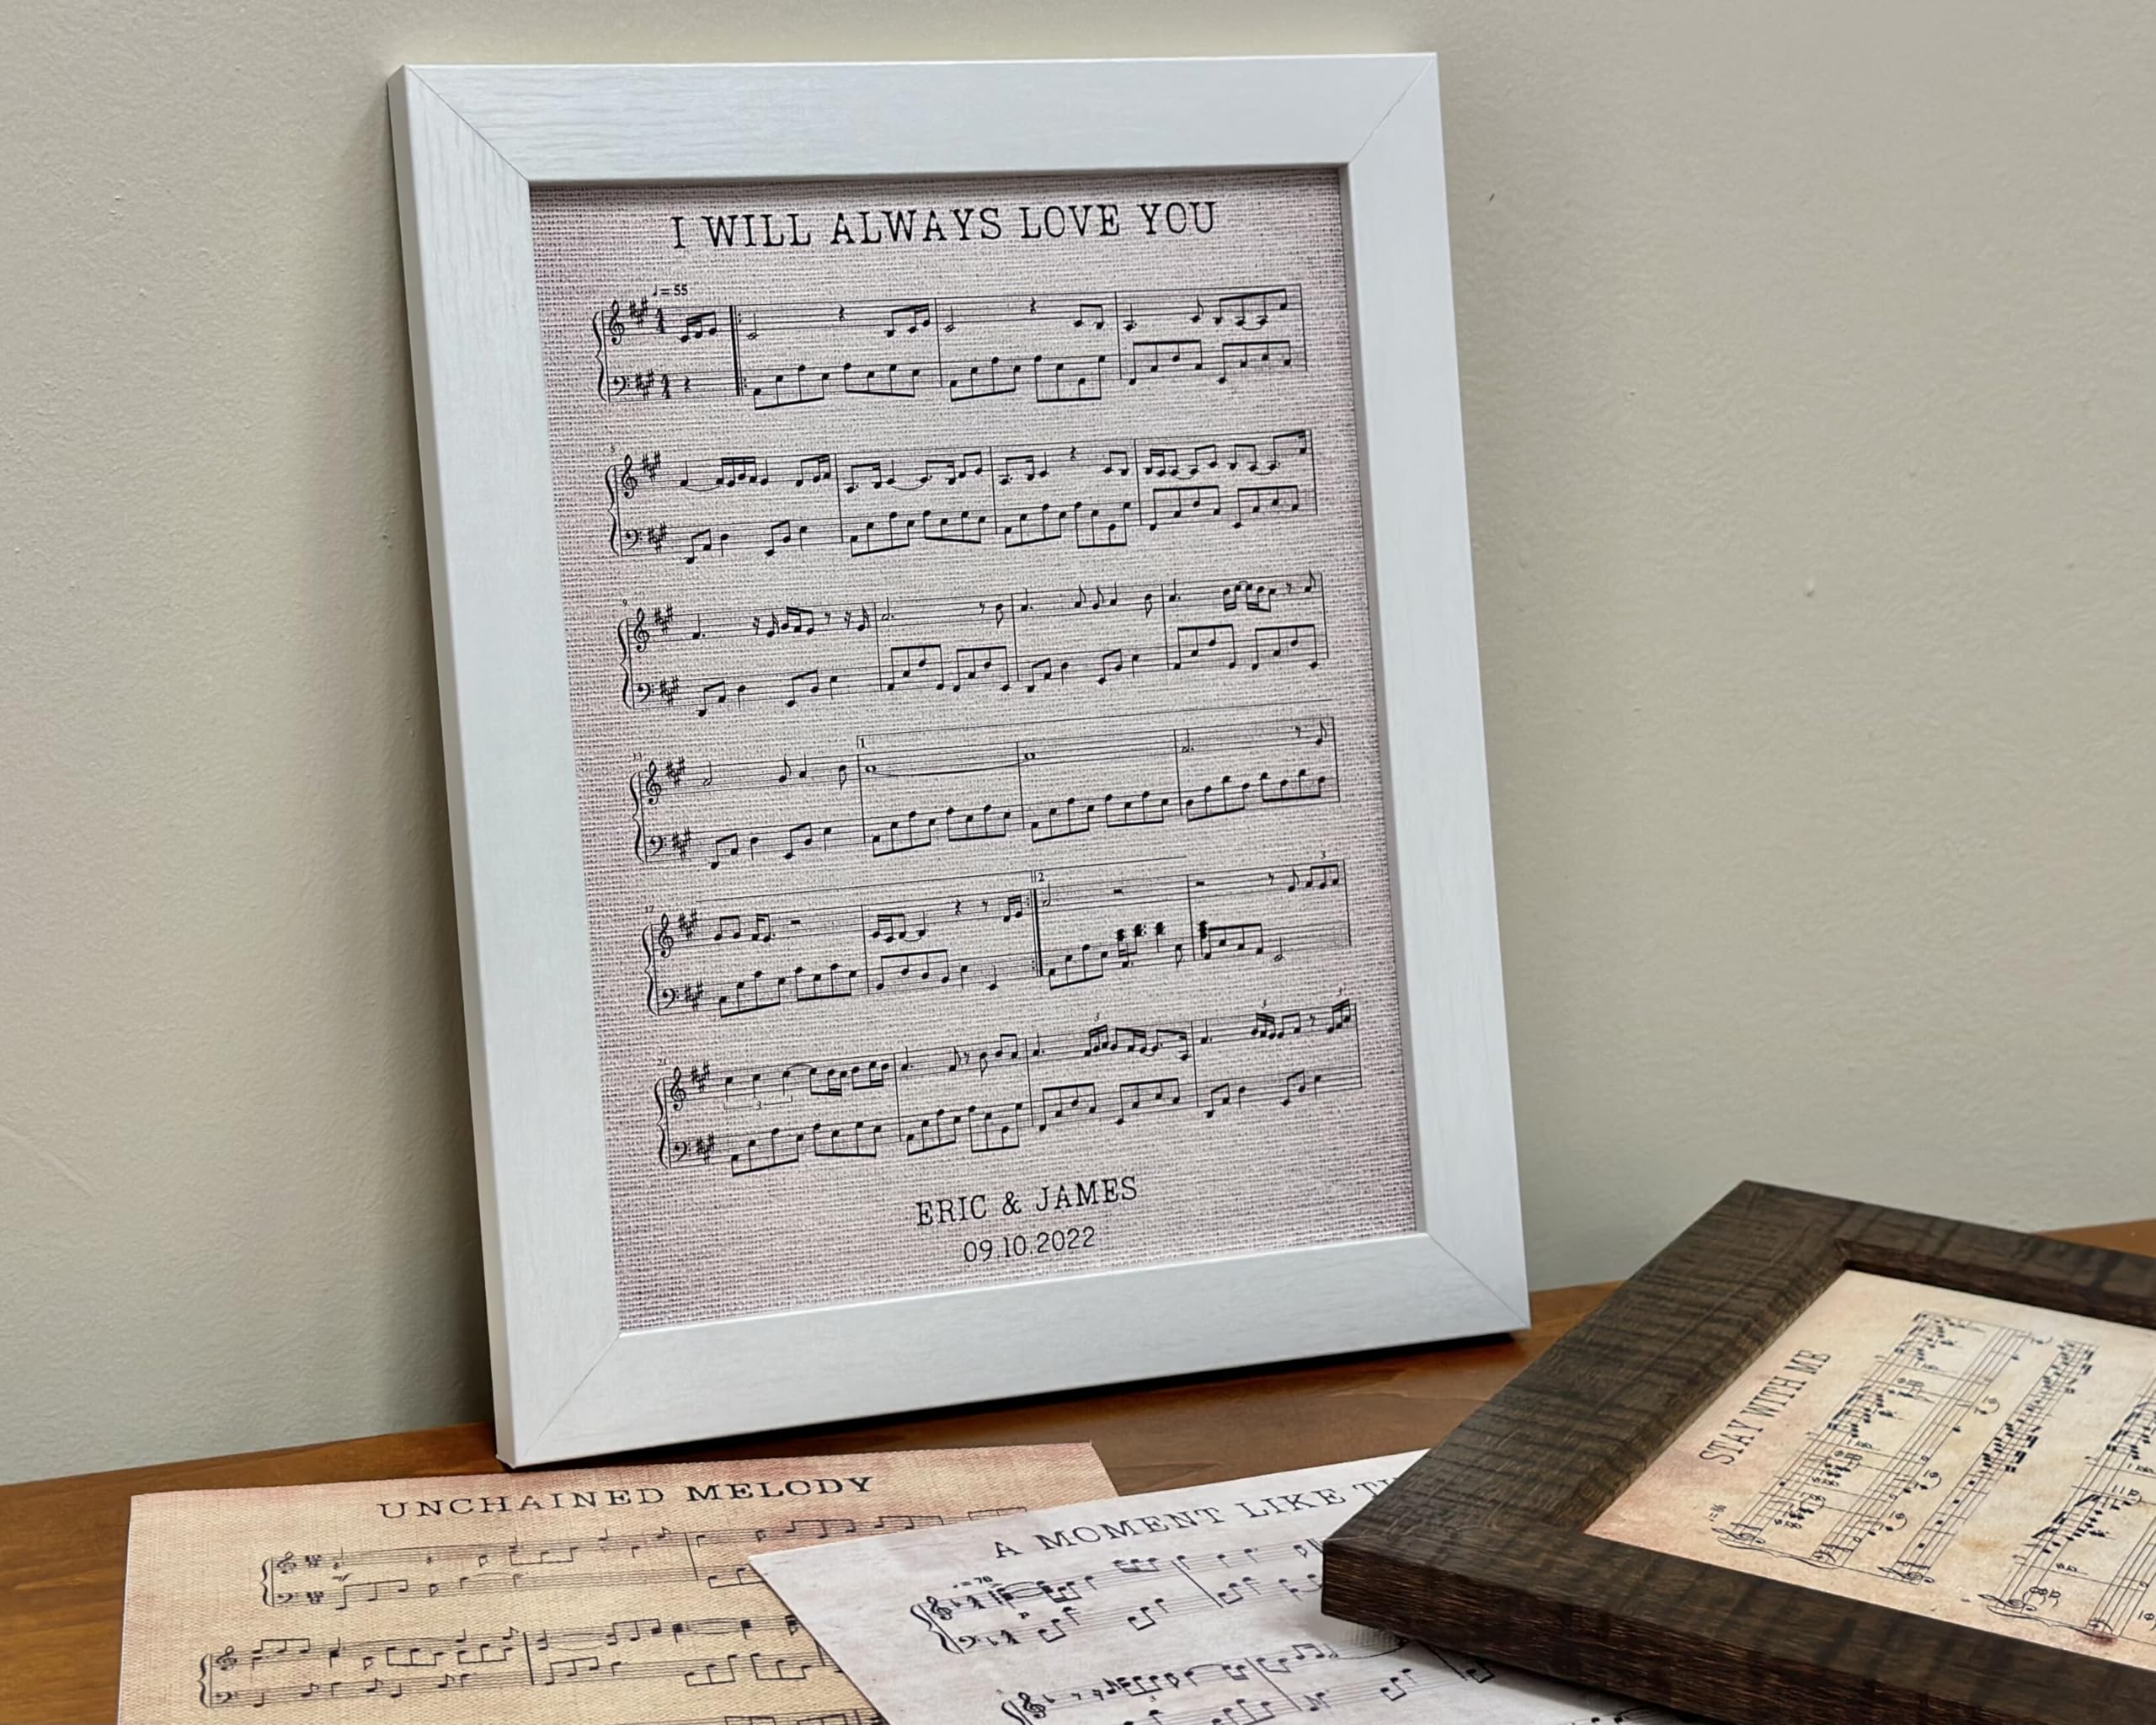 I WILL ALWAYS LOVE YOU
♩ = 55
5
9
13
1
17
2
3
21
3
3
3
ERIC & JAMES
09.10.2022
UNCHAINED MELODY
A MOMENT LIKE
= 70
STAY WITH ME